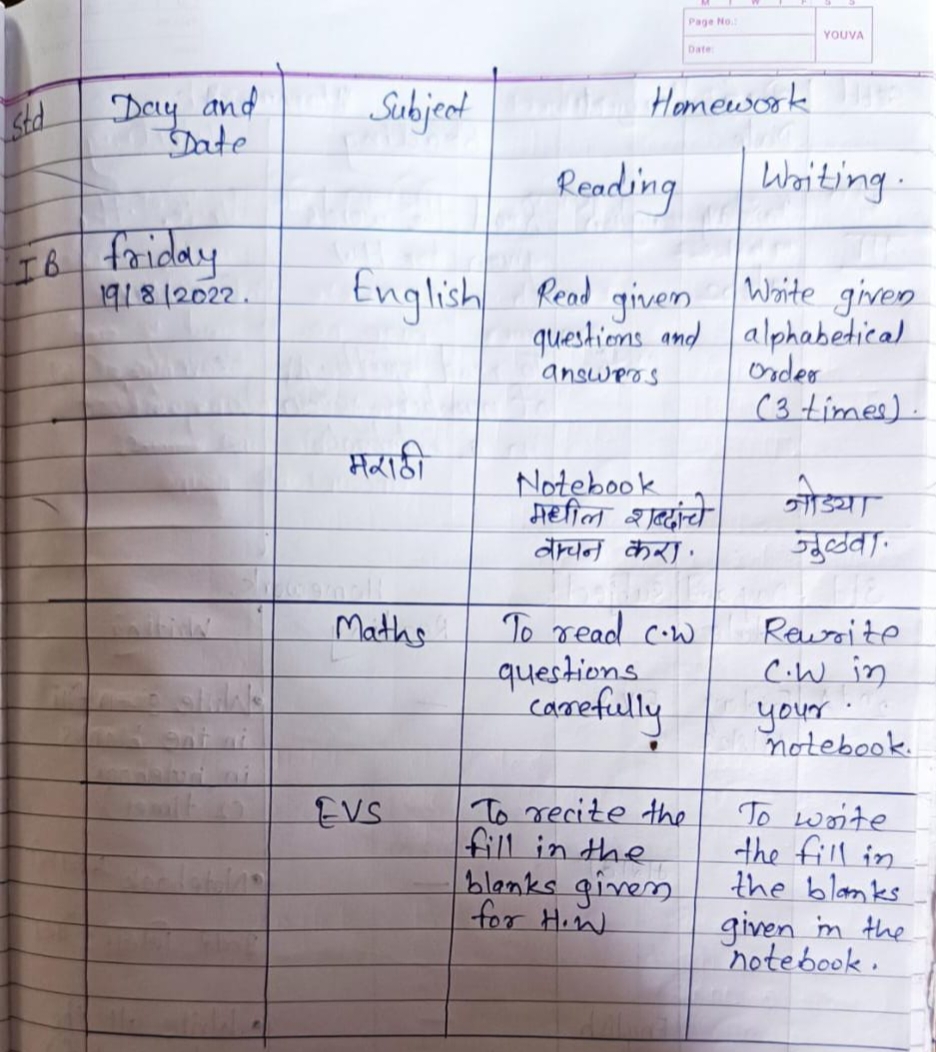 M T W T F S S
Page No.:
YOUVA
Date:
Std
Day and
Date
Subject
Homework
Reading
Writing.
I B
friday
19/8/2022.
English
Read given
questions and
answers
Write given
alphabetical
order
(3 times).
मराठी
Notebook
मधील शब्दांचे
वाचन करा.
जोड्या
जुळवा.
Maths
To read C.W
questions
carefully
Rewrite
C.W in
your
notebook.
EVS
To recite the
fill in the
blanks given
for H.W
To write
the fill in
the blanks
given in the
notebook.